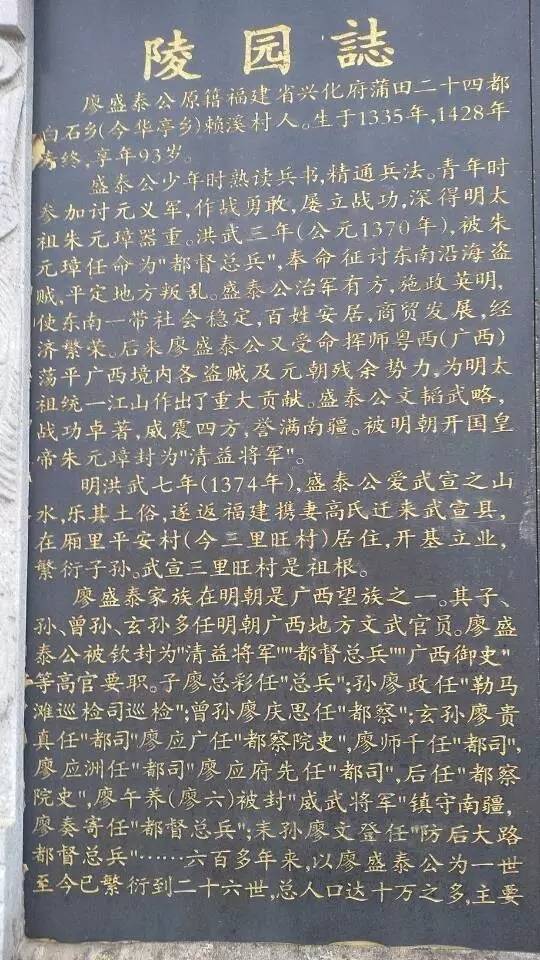 陵园誌
廖盛泰公原籍福建省兴化府蒲田二十四都
白石乡(今华亭乡)赖溪村人。生于1335年,1428年
寿终,享年93岁。
盛泰公少年时熟读兵书,精通兵法。青年时
参加讨元义军,作战勇敢,屡立战功,深得明太
祖朱元璋器重。洪武三年(公元1370年),被朱
元璋任命为"都督总兵",奉命征讨东南沿海盗
贼、平定地方叛乱。盛泰公治军有方,施政英明,
使东南一带社会稳定,百姓安居,商贸发展,经
济繁荣。后来廖盛泰公又受命挥师粤西(广西)
荡平广西境内各盗贼及元朝残余势力,为明太
祖统一江山作出了重大贡献。盛泰公文韬武略,
战功卓著,威震四方,誉满南疆。被明朝开国皇
帝朱元璋封为"清益将军"。
明洪武七年(1374年),盛泰公爱武宣之山
水,乐其土俗,遂返福建携妻高氏迁来武宣县,
在厢里平安村(今三里旺村)居住,开基立业,
繁衍子孙。武宣三里旺村是祖根。
廖盛泰家族在明朝是广西望族之一。其子、
孙、曾孙、玄孙多任明朝广西地方文武官员。廖盛
泰公被钦封为"清益将军""都督总兵""广西御史"
等高官要职。子廖总彩任"总兵";孙廖政任"勒马
滩巡检司巡检";曾孙廖庆思任"都察";玄孙廖贵
真任"都司"廖应广任"都察院史",廖师千任"都司",
廖应洲任"都司"廖应府先任"都司",后任"都察
院史",廖午养(廖六)被封"威武将军"镇守南疆,
廖奏寄任"都督总兵";耒孙廖文登任"防后大路
都督总兵"……六百多年来,以廖盛泰公为一世
至今已繁衍到二十六世,总人口达十万之多,主要